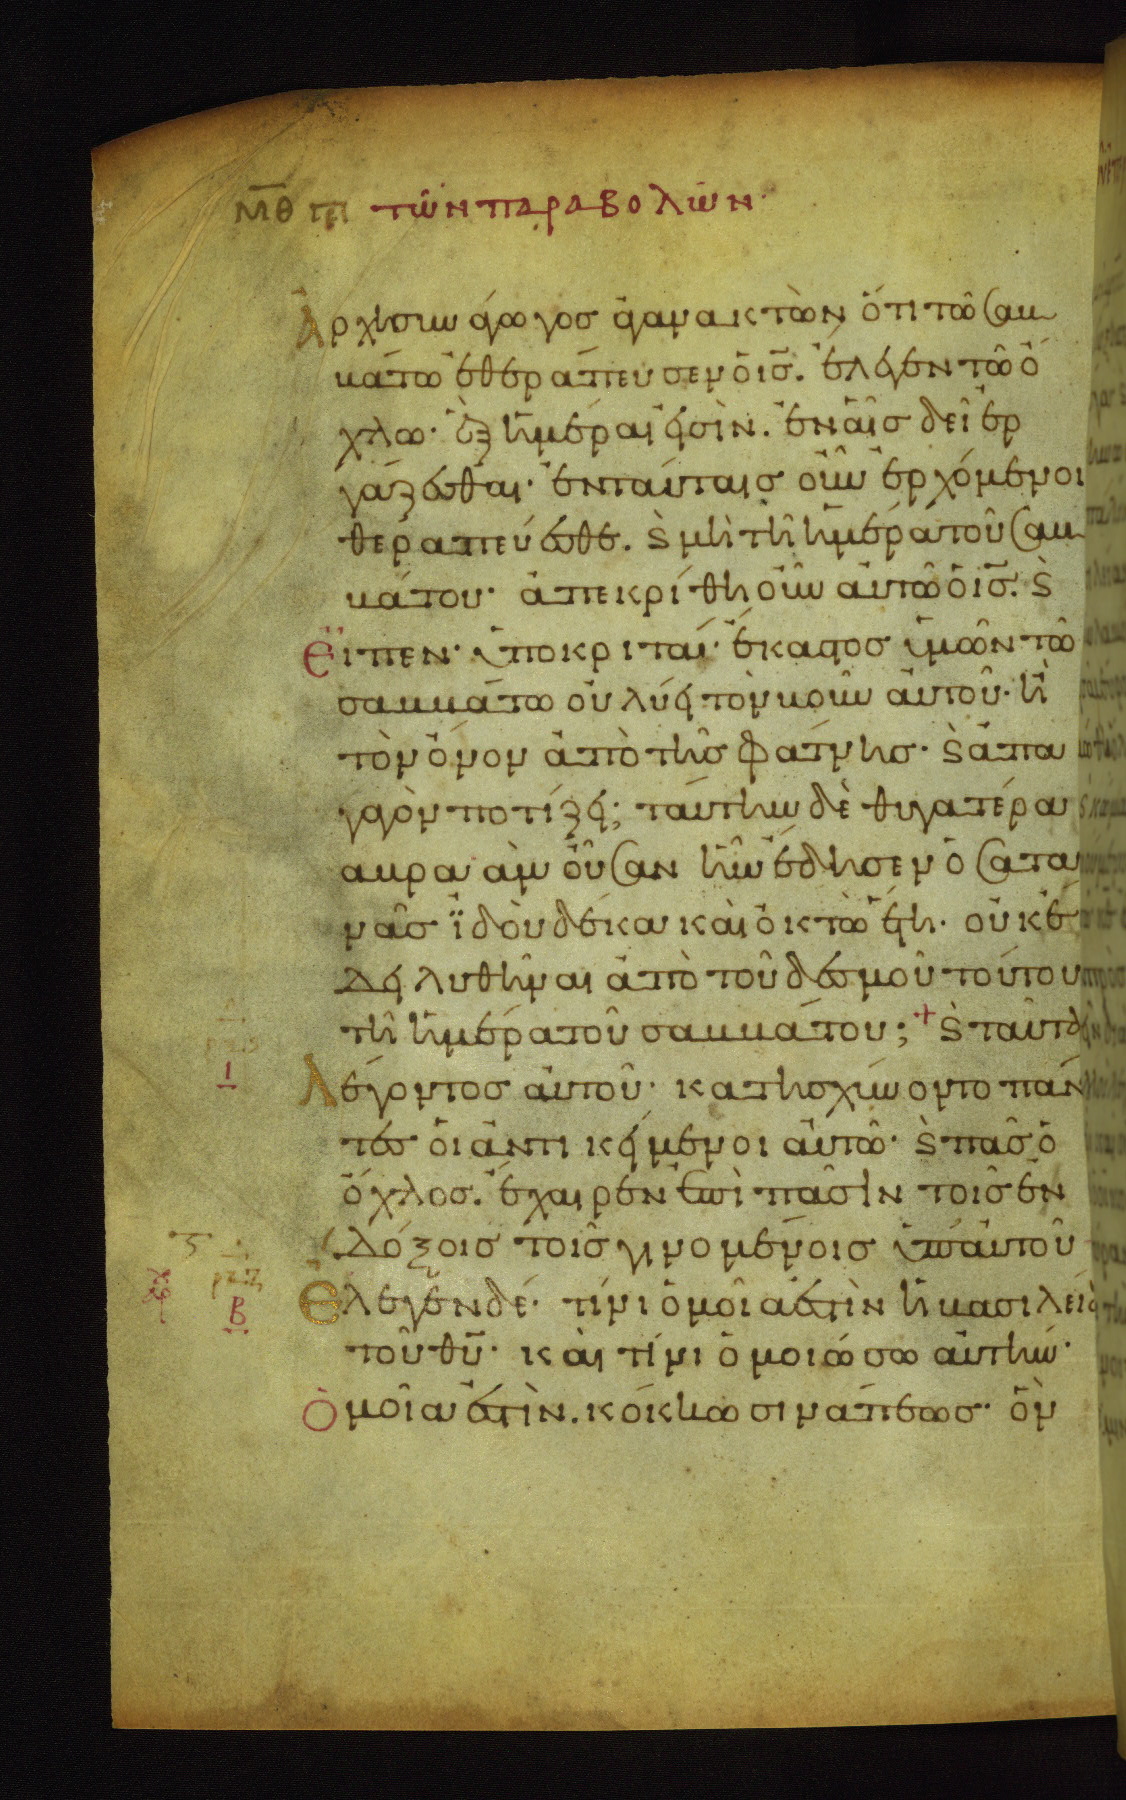 ΜΘ ΙΓΙ τῶν παραβολῶν·
Ἀρχησυναγωγοσ ἀγανακτῶν ὅτι τῶ σαβ
βάτω ἐθεράπευσεν ὁ ισ̅. ἔλεγεν τῶ ὄ
χλω· ἓξ ἡμέραι εἰσὶν. ἐν αἷσ δεῖ ἐρ
γάζεσθαι· ἐν ταύταισ οὖν ἐρχόμενοι
θεραπεύεσθε. ϗ μὴ τῆ ἡμέρα τοῦ σαβ
βάτου· ἀπεκρίθη οὖν αὐτῶ ὁ ισ̅. ϗ
εἶπεν· ὑποκριταί· ἕκαστοσ ὑμῶν τῶ
σαββάτω οὐ λύει τὸν βοῦν αὐτοῦ· ἢ
τὸν ὄνον ἀπὸ τῆσ φάτνησ· ϗ ἀπα
γαγὼν ποτίζει; ταύτην δὲ θυγατέρα
αβρααμ οὖσαν ἣν ἔδησεν ὁ σατα
νᾶσ ἰδοὺ δέκα καὶ ὀκτὼ ἔτη· οὐκ ἔ
δει λυθῆναι ἀπὸ τοῦ δεσμοῦ τούτου
τῆ ἡμέρα τοῦ σαββάτου; + ϗ ταῦτα
Λέγοντοσ αὐτοῦ· κατησχύνοντο πάν
τεσ οἱ ἀντικείμενοι αὐτῶ· ϗ πᾶσ ὁ
ὄχλοσ. ἔχαιρεν ἐπὶ πᾶσιν τοῖσ ἐν
δόξοισ τοῖσ γινομένοισ ὑπ' αὐτοῦ
Ἔλεγεν δέ· τίνι ὁμοία ἐστὶν ἡ βασιλεία
τοῦ θυ̅· καὶ τίνι ὁμοιώσω αὐτήν·
Ὁμοία ἐστὶν. κόκκω σινάπεωσ· ὃν